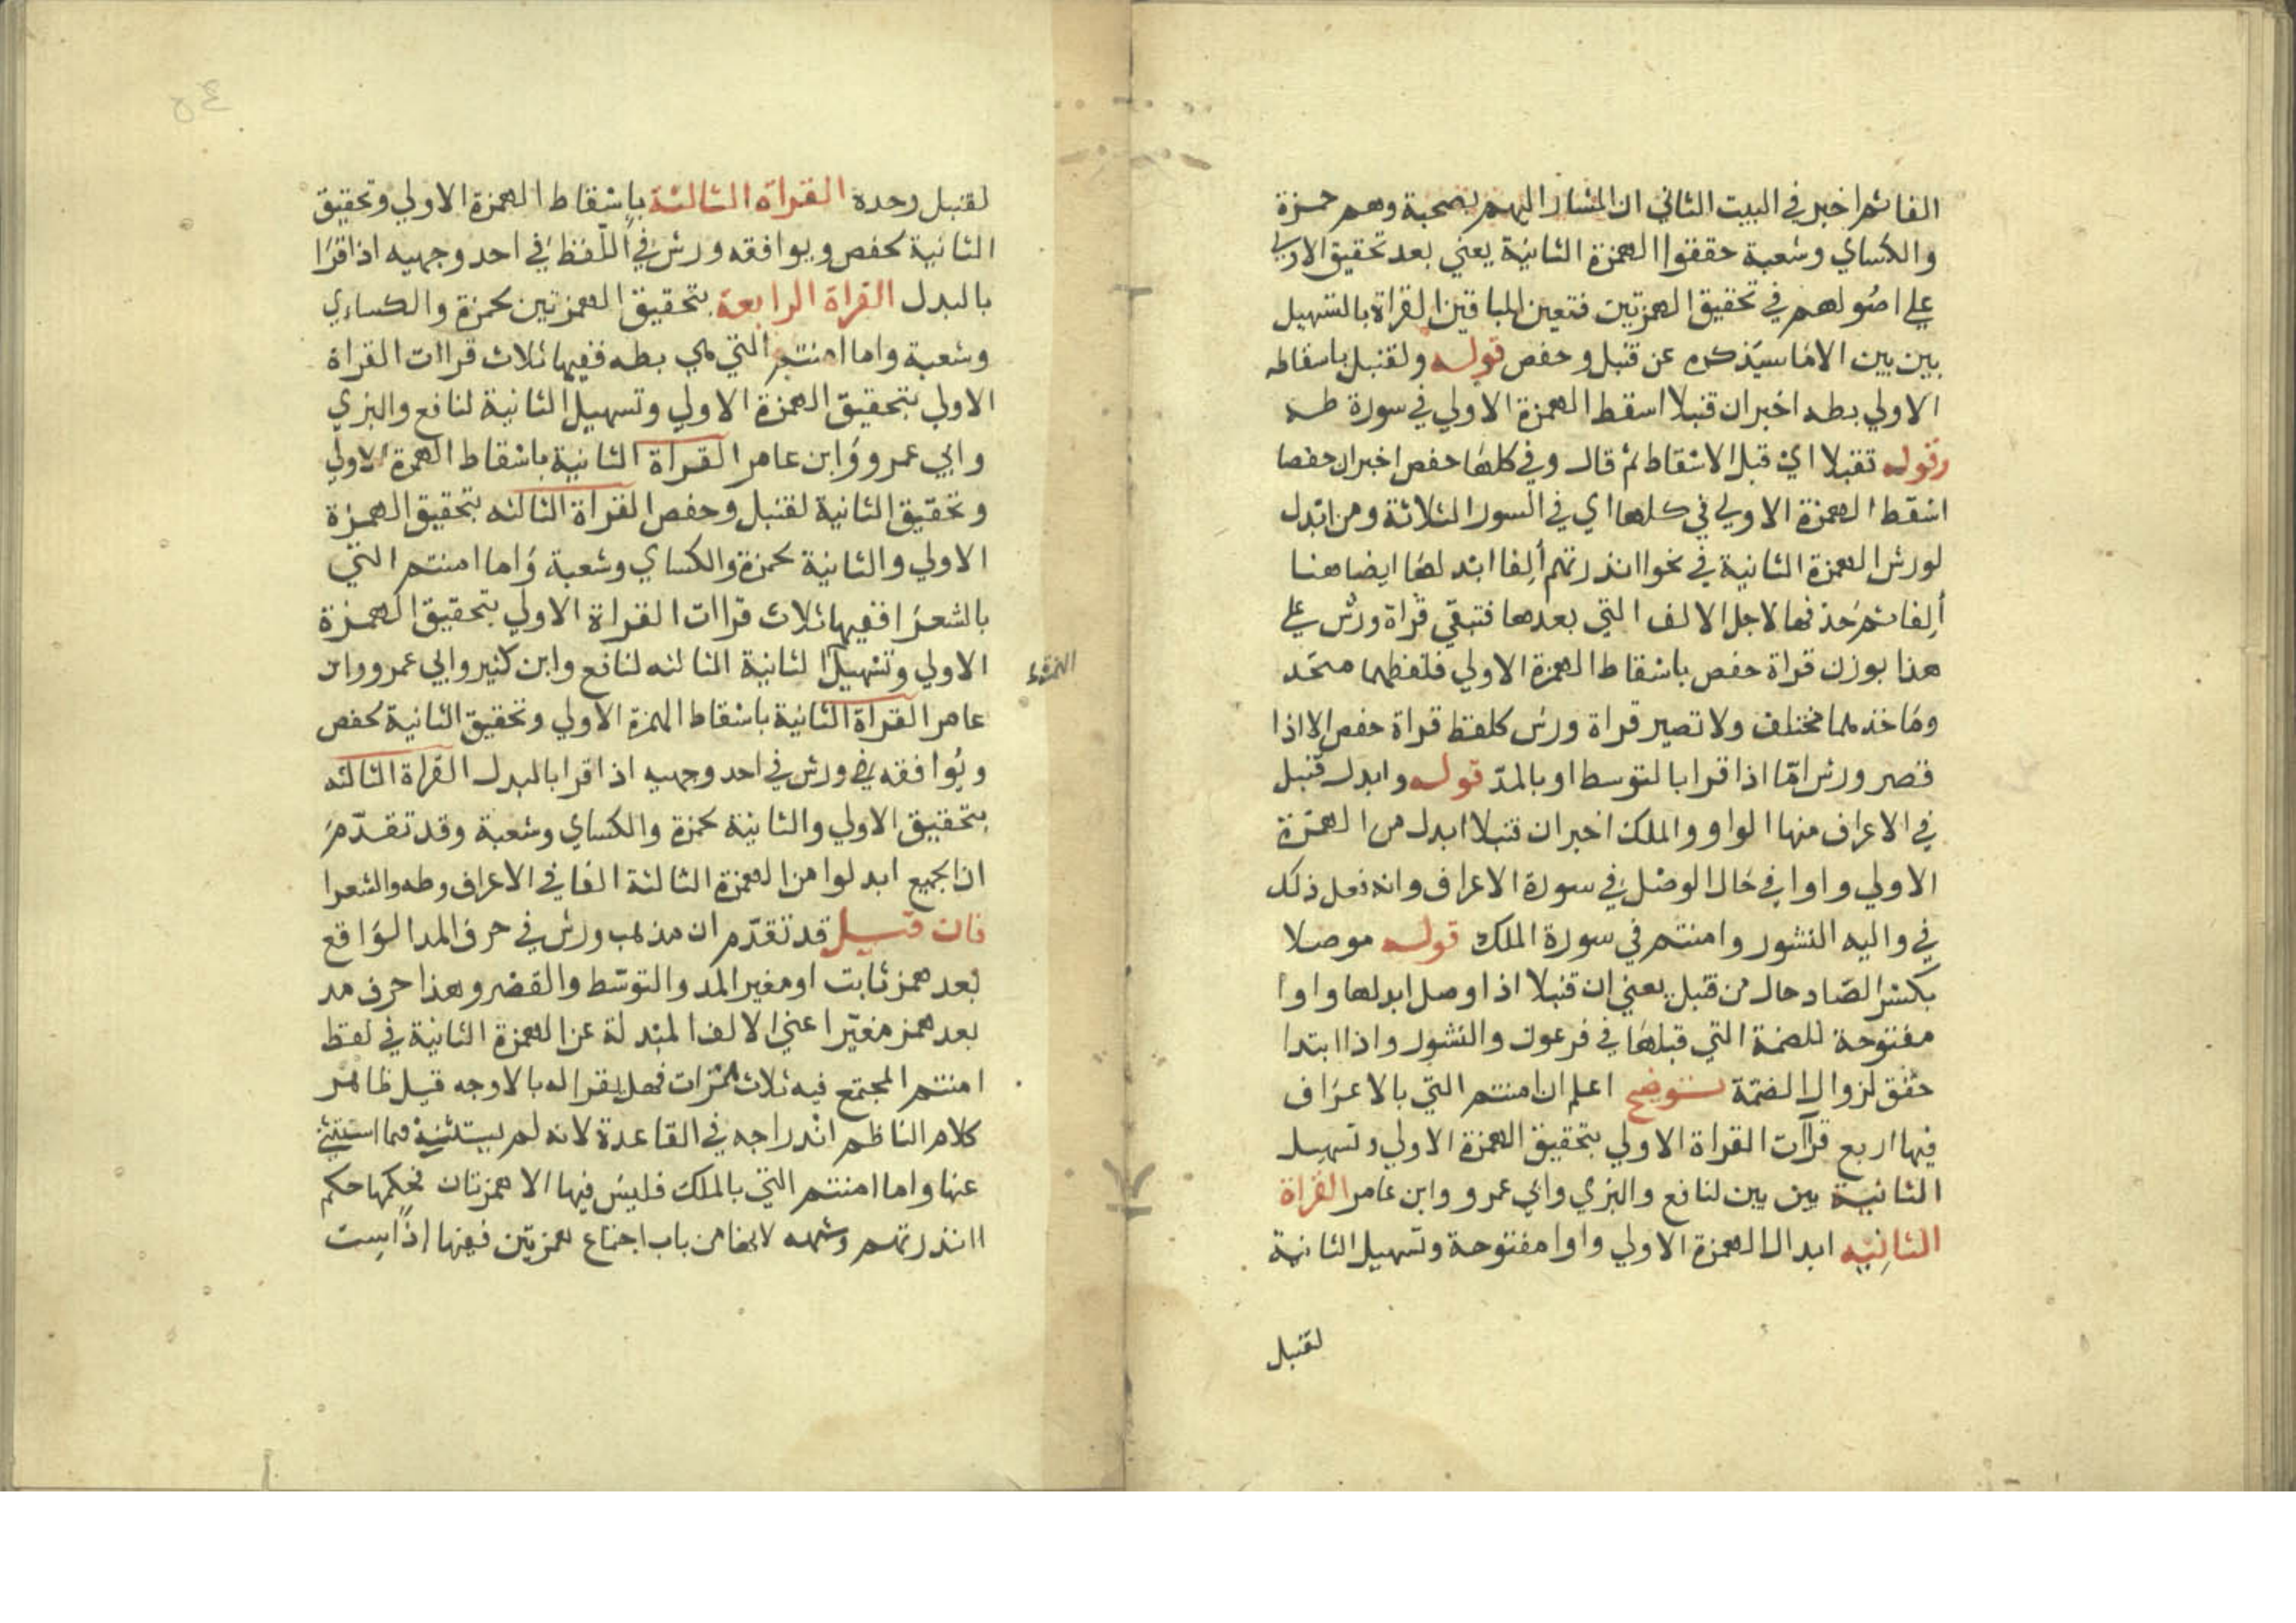 الفا ثم اخبر في البيت الثاني ان المشار اليهم بصحبة وهم حمزة
والكساي وشعبة حققوا الهمزة الثانية يعني بعد تحقيق الاولي
علي اصولهم في تحقيق الهمزتين فتعين للباقين القراة بالتسهيل
بين بين الا ما سيذكره عن قنبل وحفص قوله ولقنبل باسقاطه
الاولي بطه اخبر ان قنبلا اسقط الهمزة الاولي في سورة طه
وقوله تقبلا اي قبل الاسقاط ثم قال وفي كلها حفص اخبر ان حفصا
اسقط الهمزة الاولي في كلها اي في السور الثلاثة ومن ابدل
لورش الهمزة الثانية في نحو اانذرتهم ألفا ابدلها ايضا هنا
ألفا ثم حذفها لاجل الالف التي بعدها فتبقي قراة ورش علي
هذا بوزن قراة حفص باسقاط الهمزة الاولي فلفظهما متحد
وماخذهما مختلف ولا تصير قراة ورش كلفظ قراة حفص الا اذا
قصر ورش امّا اذا قرا بالتوسط او بالمدّ قوله وابدل قنبل
في الاعراف منها الواو والملك اخبر ان قنبلا ابدل من الهمزة
الاولي واوا في حال الوصل في سورة الاعراف وانه فعل ذلك
في واليه النشور وامنتم في سورة الملك قوله موصلا
بكسر الصاد حال من قنبل يعني ان قنبلا اذا وصل ابدلها واوا
مفتوحة للضمة التي قبلها في فرعون والنشور واذا ابتدا
حقق لزوال الضمة توضيح اعلم ان امنتم التي بالاعراف
فيها اربع قرآات القراة الاولي بتحقيق الهمزة الاولي وتسهيل
الثانية بين بين لنافع والبزي وابي عمرو وابن عامر القراة
الثانيه ابدال الهمزة الاولي واوا مفتوحة وتسهيل الثانية
لقنبل
لقنبل وحدة القراة الثالثة باسقاط الهمزة الاولي وتحقيق
الثانية لحفص ويوافقه ورش في اللفظ في احد وجهيه اذا قرا
بالبدل القراة الرابعة بتحقيق الهمزتين لحمزة والكساءي
وشعبة واما امنتم التي هي بطه ففيها ثلاث قراات القراة
الاولي بتحقيق الهمزة الاولي وتسهيل الثانية لنافع والبزي
وابي عمرو وابن عامر القراة الثانية باسقاط الهمزة الاولي
وتحقيق الثانية لقنبل وحفص القراة الثالثه بتحقيق الهمزة
الاولي والثانية لحمزة والكساي وشعبة واما امنتم التي
بالشعرا ففيها ثلاث قراات القراة الاولي بتحقيق الهمزة
الاولي وتسهيل الثانية الثالثه لنافع وابن كثير وابي عمرو وابن
عامر القراة الثانية باسقاط الهمزة الاولي وتحقيق الثانية لحفص
ويوافقه ورش في احد وجهيه اذا قرا بالبدل القراة الثالثه
بتحقيق الاولي والثانية لحمزة والكساي وشعبة وقد تقدم
ان الجميع ابدلوا من الهمزة الثالثة الفا في الاعراف وطه والشعرا
فان قيل قد تقدّم ان مذهب ورش في حرف المد الواقع
بعد همز ثابت او مغير المد والتوسط والقصر وهذا حرف مد
بعد همز مغيّر اعني الالف المبدلة عن الهمزة الثانية في لفظ
امنتم المجتمع فيه ثلاث همزات فهل يقرا له بالاوجه قيل ظاهر
كلام الناظم اندراجه في القاعدة لانه لم يستثنه فيما استثني
عنها واما امنتم التي بالملك فليس فيها الا همزتان فحكمها حكم
اانذرتهم وشبهه لانها من باب اجتماع همزتين فيها اذ ليست